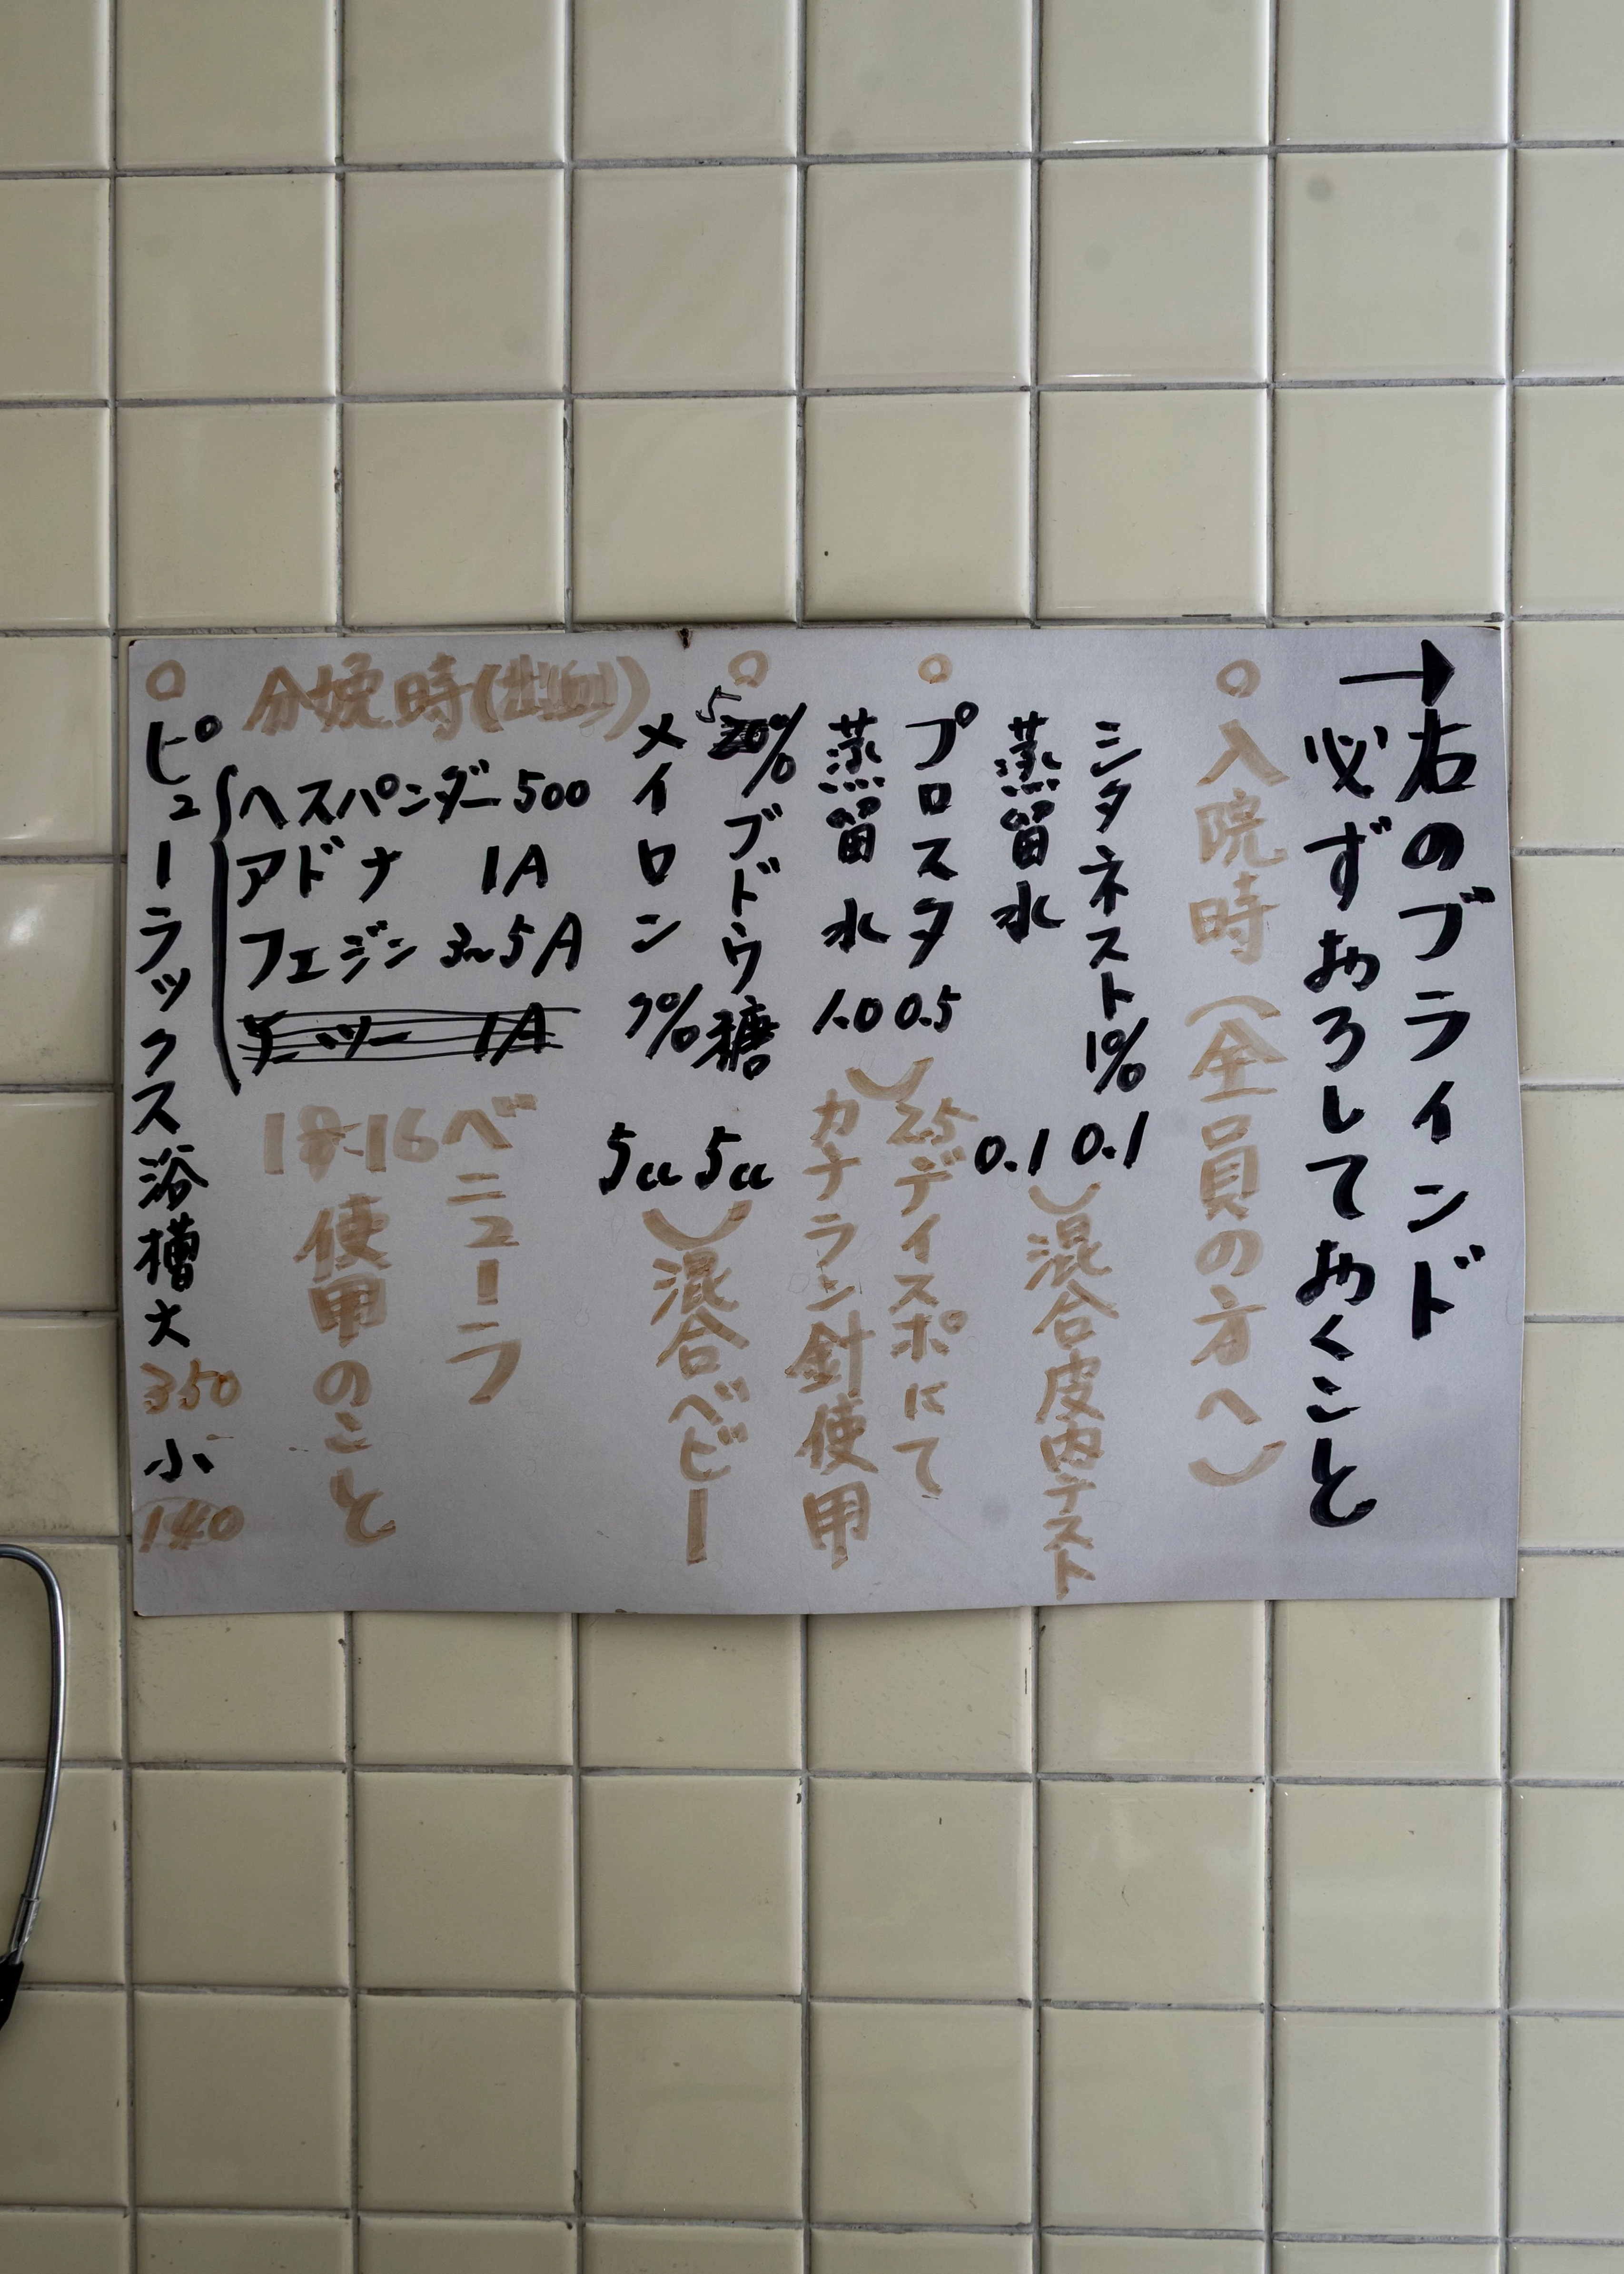 →右のブラインド
必ずおろしておくこと
○入院時(全員の方へ)
シタネスト1% 0.1
蒸留水 0.1
混合皮内テスト
○プロスタ 0.5
蒸留水 1.0
2.5ディスポにて
カテラン針使用
○5%ブドウ糖 5cc
メイロン7% 5cc
混合ベビー
分娩時(出血)
ヘスパンダー 500
アドナ 1A
フェジン 3~5A
ベニューラ
使用のこと
○ピューラックス浴槽大350小140